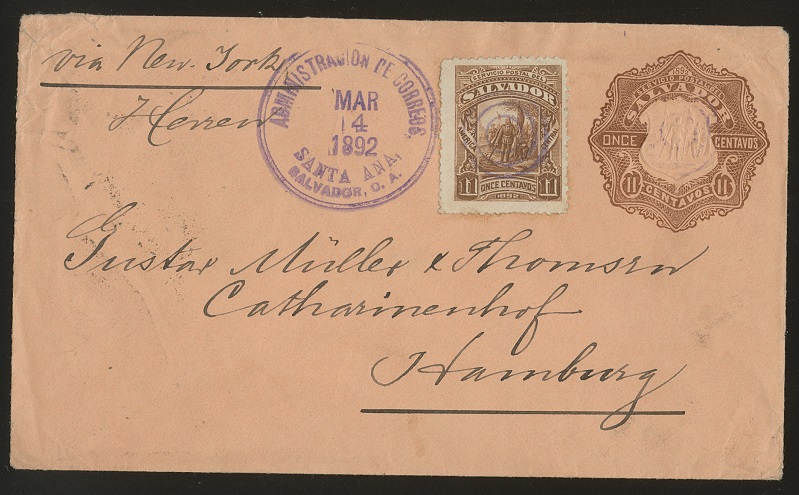 via New-York
Herren
ADMINISTRACION DE CORREOS,
MAR
14
1892
SANTA ANA,
SALVADOR, C. A.
SERVICIO POSTAL DEL
SALVADOR
AMERICA CENTRAL
11 ONCE CENTAVOS 11
1892
1892
SERVICIO POSTAL DEL
SALVADOR
ONCE CENTAVOS
11 CENTAVOS 11
Gustav Müller & Thomsen
Catharinenhof
Hamburg